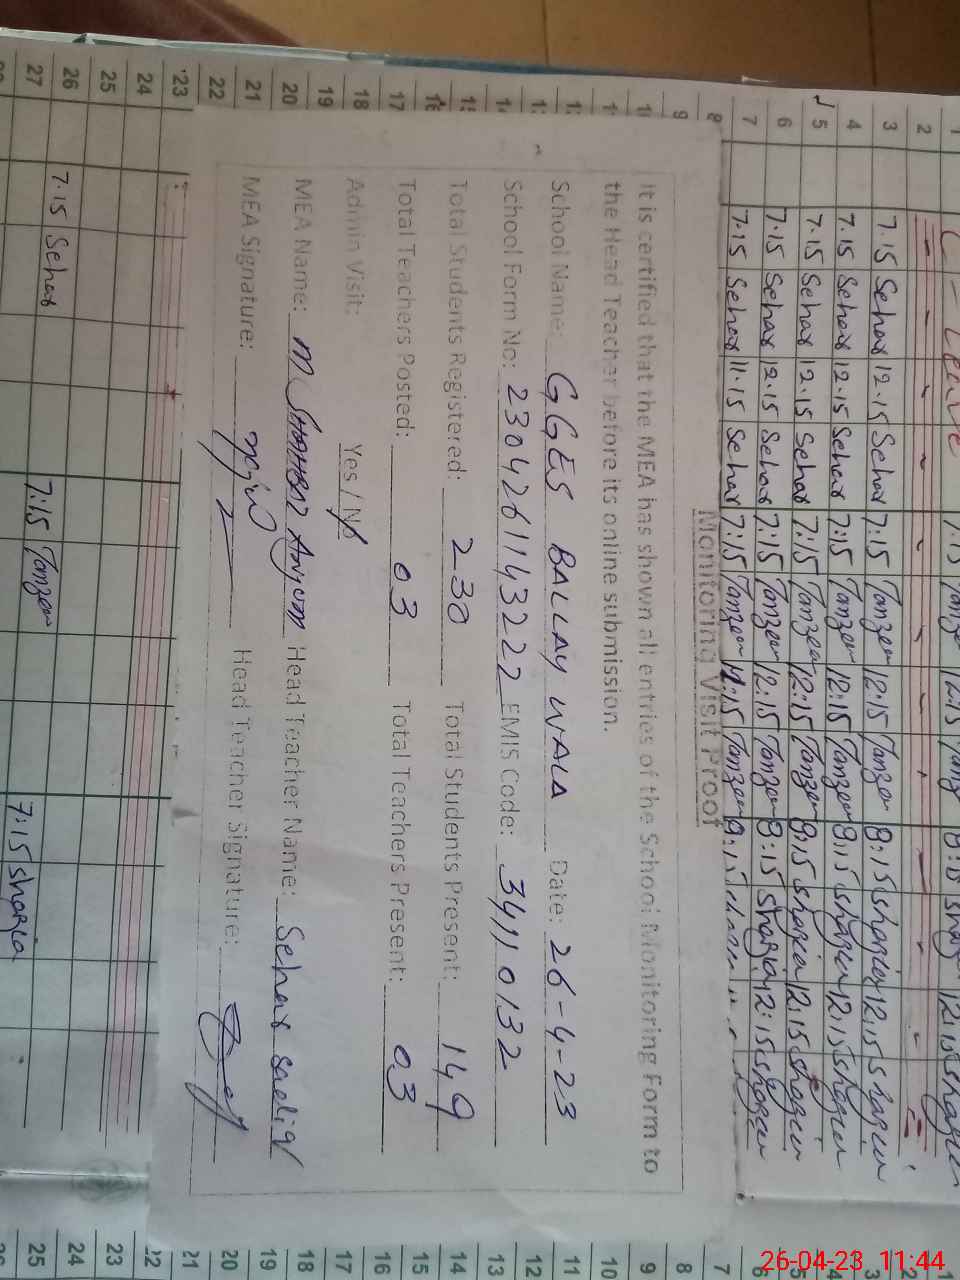 Monitoring Visit Proof
It is certified that the MEA has shown all entries of the School Monitoring Form to
the Head Teacher before its online submission.
School Name: GGES BALLAY WALA Date: 26-4-23
School Form No: 2304261143222 EMIS Code: 34110132
Total Students Registered: 230 Total Students Present: 149
Total Teachers Posted: 03 Total Teachers Present: 03
Admin Visit: Yes / No
MEA Name: M Anjum Head Teacher Name: Sehar
MEA Signature: Head Teacher Signature:
1
2
3 7.15 Sehar 12.15 Sehar 7:15 Tanzem 12:15 Tanzem 8:15 12:15
4 7.15 Sehar 12.15 Sehar 7:15 Tanzem 12:15 Tanzem 8:15 12:15
5 7.15 Sehar 12.15 Sehar 7:15 Tanzem 12:15 Tanzem 8:15 12:15
6 7.15 Sehar 12.15 Sehar 7:15 Tanzem 12:15 Tanzem 8:15 12:15
7 7.15 Sehar 11.15 Sehar 7:15 Tanzem 11:15 Tanzem
8
9
10
11
12
13
14
15
16
17
18
19
20
21
22
23
24
25
26 7.15 Sehar
27 7:15 Tanzem 7:15
26-04-23 11:44